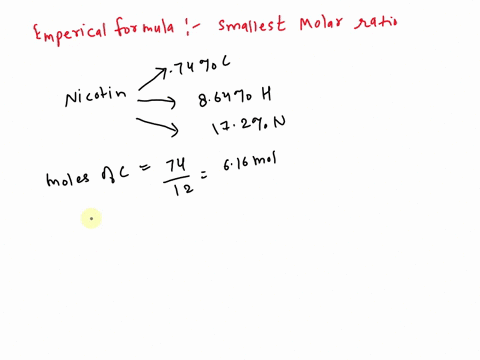 Emperical formula :- Smallest Molar ratio
Nicotin
7.74% C
8.64% H
17.2% N
moles of C = 74 / 12 = 6.16 mol